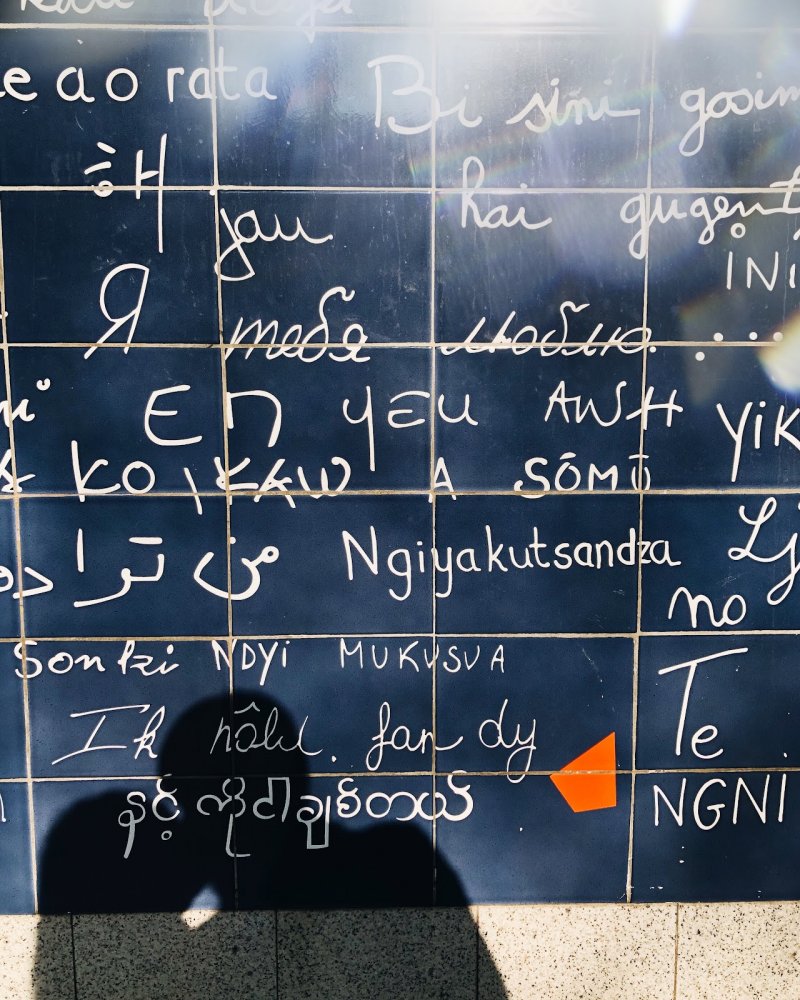 e a o rata Bi sini gosim
해
jau hai gugent
INI
Я тебя люблю.
En yeu AWH YiK
KO A SŌMŪ
من ترا Ngiyakutsandza Lj
no
Sontzi NDYI MUKUSUA
Ik hâld fan dy Te
နင့် ကိုငါချစ်တယ် NGNI